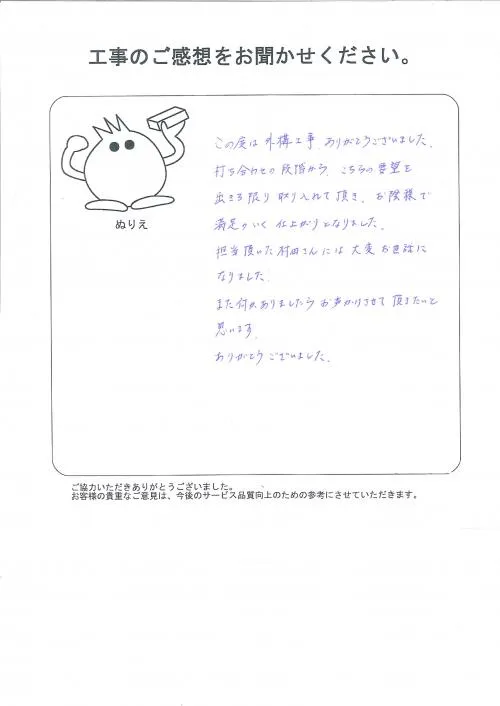 工事のご感想をお聞かせください。
ぬりえ
この度は外構工事、ありがとうございました。
打ち合わせの段階から、こちらの要望を
出きる限り取り入れて頂き、お陰様で
満足のいく仕上がりとなりました。
担当頂いた村田さんには大変お世話に
なりました。
また何かありましたらお声かけさせて頂きたいと
思います。
ありがとうございました。
ご協力いただきありがとうございました。
お客様の貴重なご意見は、今後のサービス品質向上のための参考にさせていただきます。